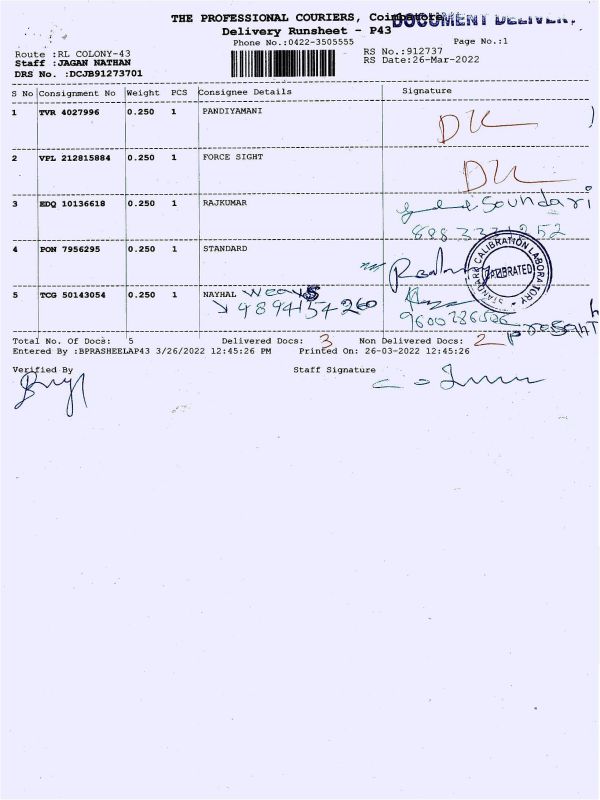 THE PROFESSIONAL COURIERS, Coimbatore
DOCUMENT DELIVERY
Delivery Runsheet - P43
Phone No.:0422-3505555 Page No.:1
Route :RL COLONY-43 RS No.:912737
Staff :JAGAN NATHAN RS Date:26-Mar-2022
DRS No. :DCJB91273701
S No Consignment No Weight PCS Consignee Details Signature
1 TVR 4027996 0.250 1 PANDIYAMANI DL
2 VPL 212815884 0.250 1 FORCE SIGHT DL
3 EDQ 10136618 0.250 1 RAJKUMAR Soundari
4 PON 7956295 0.250 1 STANDARD
STANDARD CALIBRATION LABORATORY
CALIBRATED
5 TCG 50143054 0.250 1 NAYHAL Weavs
9894154260 9600286506
Prasanth
Total No. Of Docs: 5 Delivered Docs: 3 Non Delivered Docs: 2
Entered By :BPRASHEELAP43 3/26/2022 12:45:26 PM Printed On: 26-03-2022 12:45:26
Verified By Staff Signature